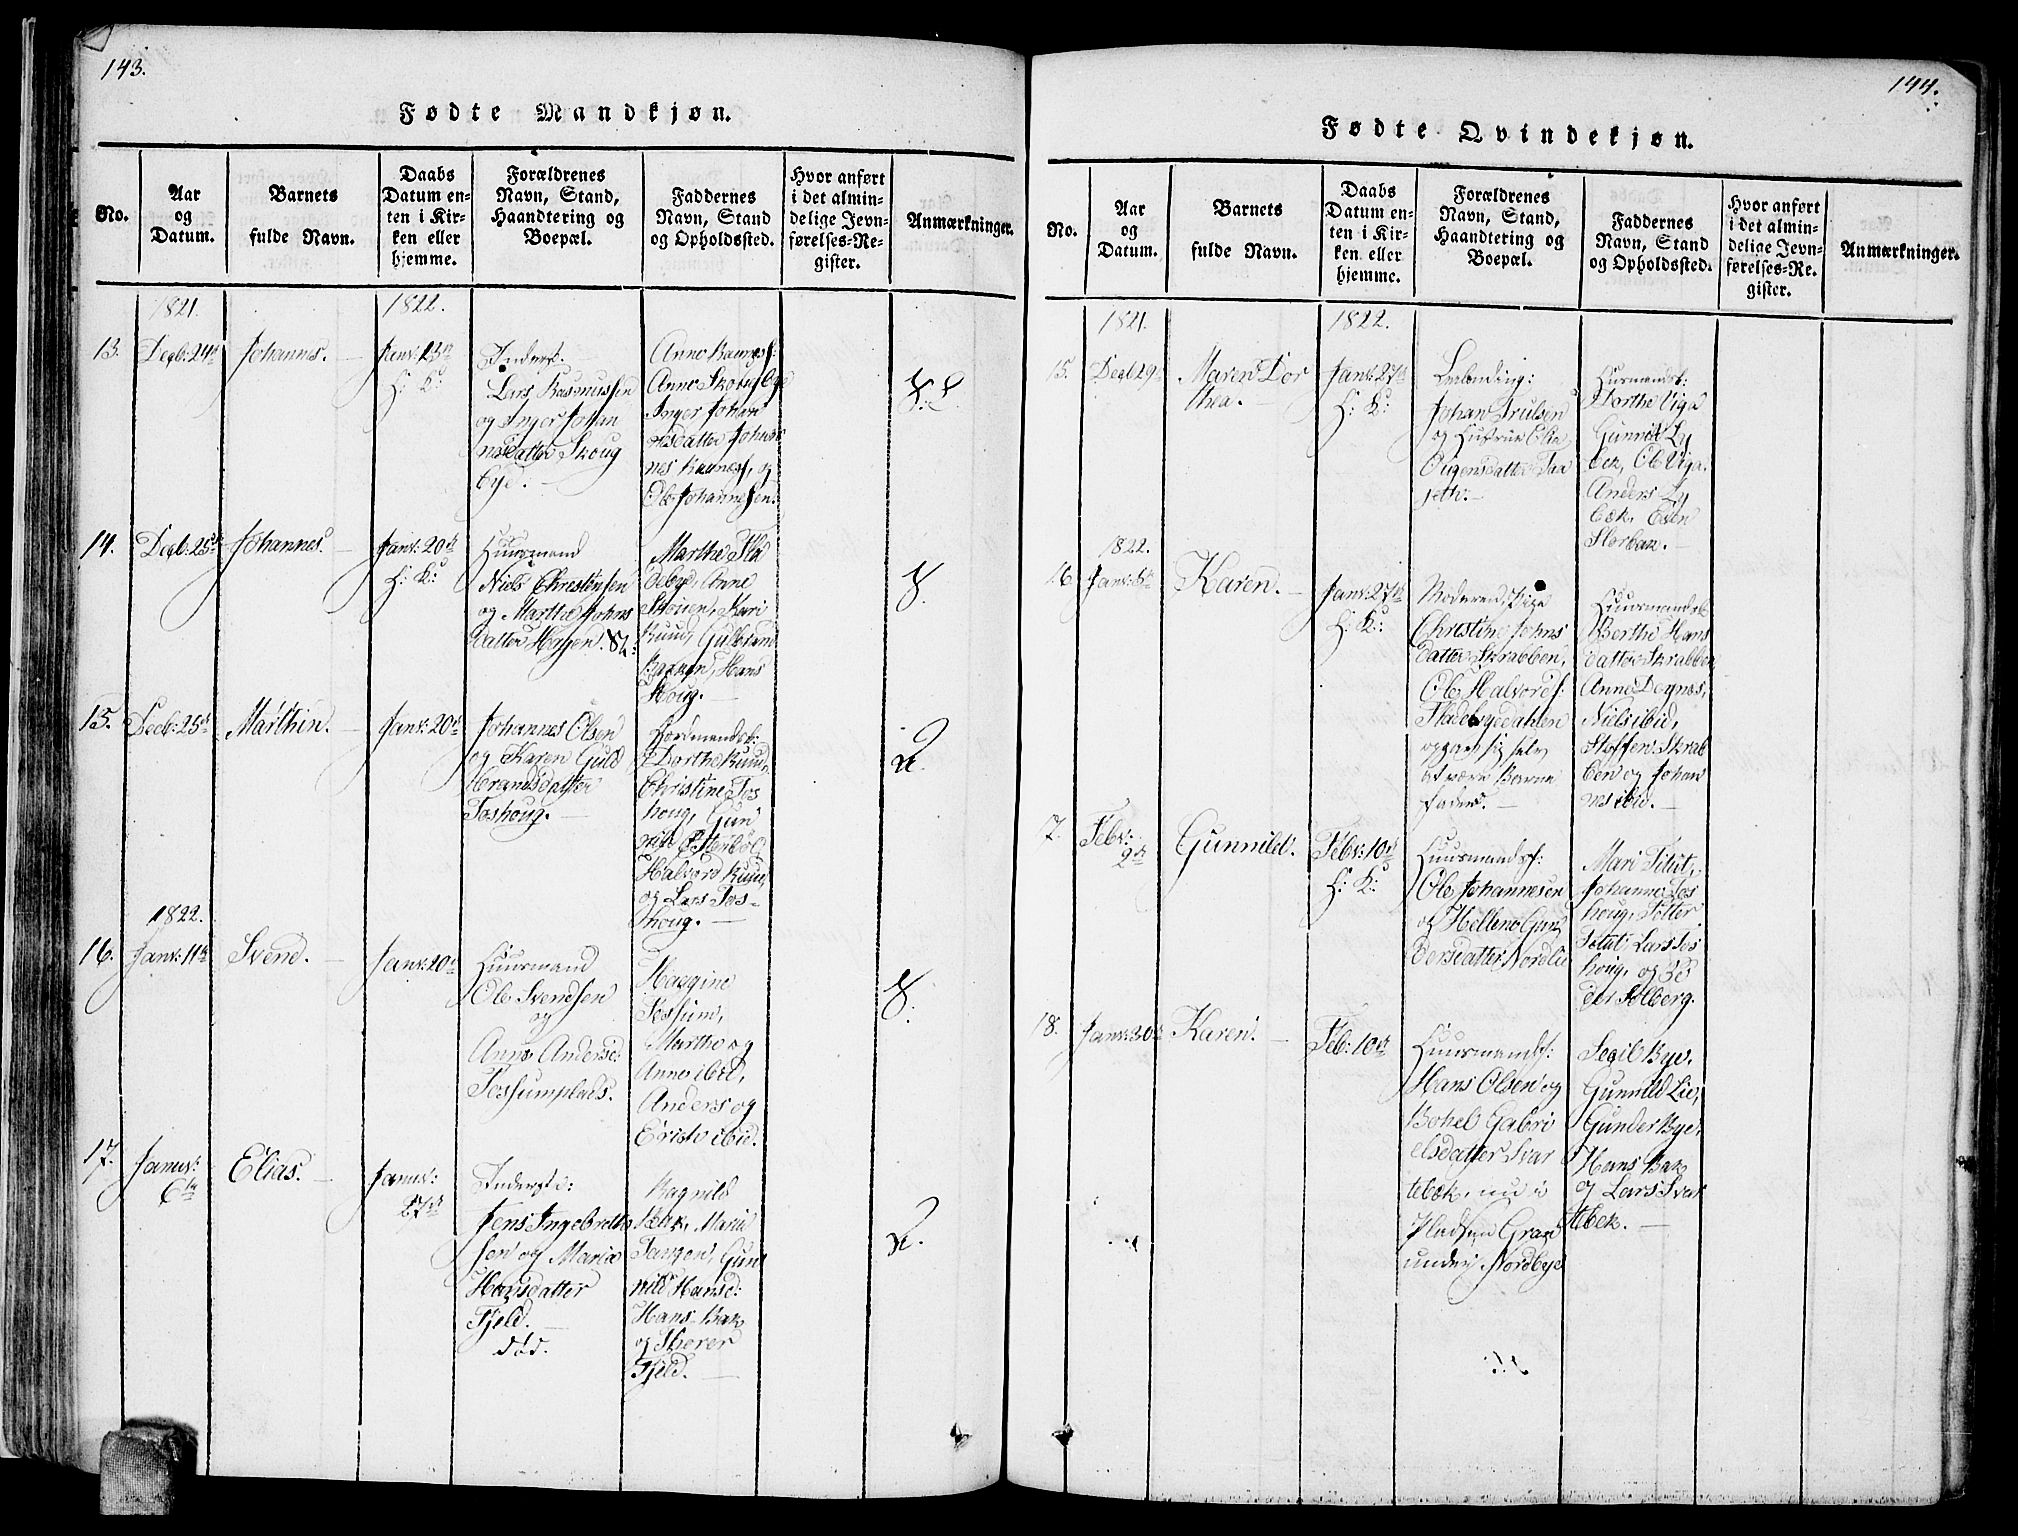 143.
Fødte Mandkjøn.
No.
Aar
og
Datum.
Barnets
fulde Navn.
Daabs
Datum en-
ten i Kir-
ken eller
hjemme.
Forældrenes
Navn, Stand,
Haandtering og
Boepæl.
Faddernes
Navn, Stand
og Opholdssted.
Hvor anført
i det almin-
delige Jevn-
førelses-Re-
gister.
Anmærkninger.
1821.
1822.
13.
Decb: 24de
Johannes.
Janv: 13de
H: K:
Inderst.
Lars Rasmussen
og Inger Johan
nsdatter Skoug
bye.
Anne
Anne Skougbye
Inger Johan
nesdatter Johan
nes
og
Ole Johannesen.
14.
Decb: 25de
Johannes.
Janv: 20de
H: K:
Huusmand
Niels Christensen
og Marthe Johns
datter Hagen.
Marthe Fla
debye, Anne
Skouen, Kari
Ruud, Gulbrand
Bakken, Hans
Houg.
15.
Decb: 25de
Marthin.
Janv: 20de
Johannes Olsen
og Karen Guld
brandsdatter
Toshoug.
Dorthe Ruud,
Christine Tos
houg, Gun
nild Østenbøl,
Halvord Ruud,
og Lars Tos-
houg.
1822.
16.
Janv: 11te
Svend.
Janv: 20de
Huusmand
Ole Svendsen
og
Anne Andersd:
Tossumplads.
Maggine
Tossum,
Marthe og
Anne ibid,
Anders og
Erich ibid.
17.
Janv:
6te
Elias.
Janv:
27de
Inderst:
Jens Ingebreth
sen og Marie
Hansdatter
Fjeld.
død.
Ragnild
Bak, Marie
Tangen, Gun
nild Hansd:
Hans Bak
og Sherer
Fjeld.
144.
Fødte Qvindekjøn.
No.
Aar
og
Datum.
Barnets
fulde Navn.
Daabs
Datum en-
ten i Kir-
ken eller
hjemme.
Forældrenes
Navn, Stand,
Haandtering og
Boepæl.
Faddernes
Navn, Stand
og Opholdssted.
Hvor anført
i det almin-
delige Jevn-
førelses-Re-
gister.
Anmærkninger.
1821.
1822.
15.
Decb 29de
Maren Dor
thea.
Janv: 27de
H: K:
Leilending:
Johan Trulsen
og Hustrue
Huusmandsf:
Dorthe Viga
Gunnild Ly
bek, Ole Viga.
Anders Ly
bek,
Storbak.
1822.
16
Janv: 6te
Karen.
Janv: 27de
H: K:
Moderen, Pige
Christine Johns
datter Skrabben,
Ole Halvords:
Fladebyedahlen
opgav sig selv
at være Barne
fader.
Huusmandsf:
Berthe Hans
datter Skrabben
Anne
Niels ibid,
Stoffen Skrab
ben og Johan
nes ibid.
7.
Febr:
9de
Gunnild.
Febr: 10de
H: K:
Huusmandsf:
Ole Johannesen
og Hellene Gun
dersdatter Nordlie
Mari Titut,
Johanne Tos
houg, Petter
Titut, Lars Tos
houg, og Pe
der Solberg.
18.
Janv: 30te
Karen.
Feb: 10de
Huusmandsf:
Hans Olsen og
Bohel Gabri
elsdatter Svar
tebek, nu i
Pladsen Gran
under Nordbye
Segil Bye,
Gunnild Lie,
Gunder Bye,
Hans Bak
og Lars Svar
tebek.